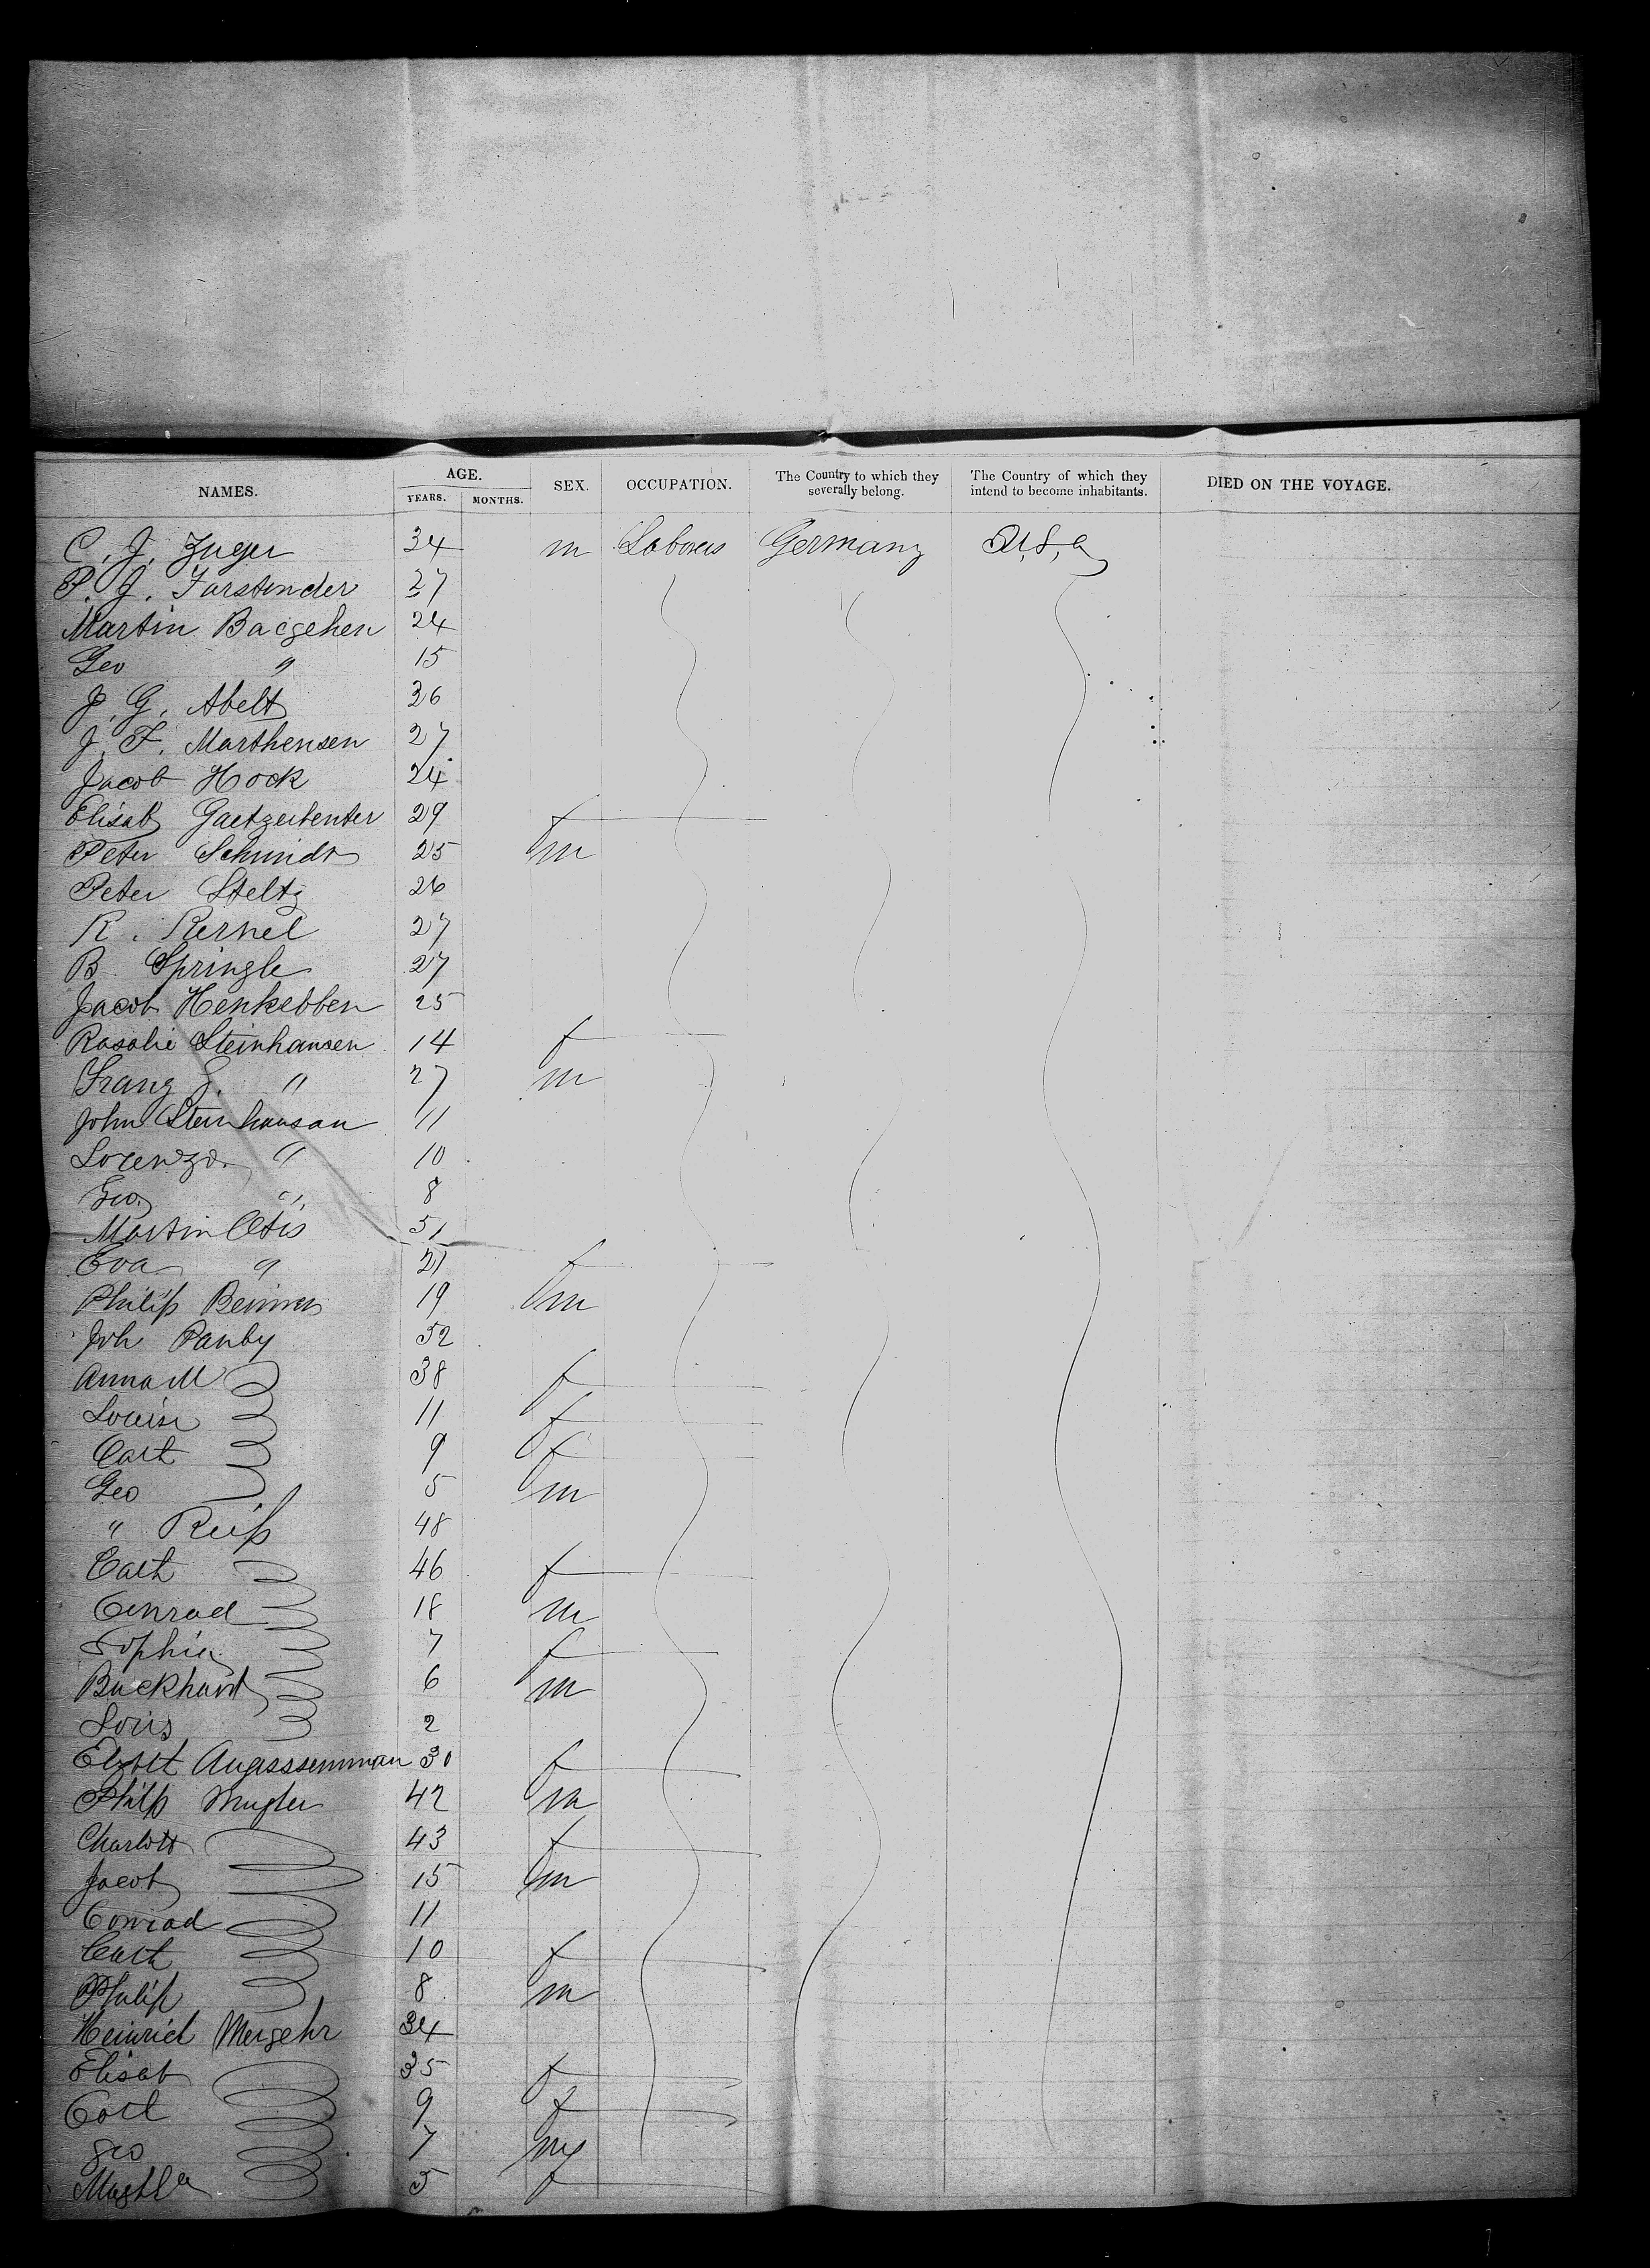 NAMES. AGE. YEARS. MONTHS. SEX. OCCUPATION. The Country to which they severally belong. The Country of which they intend to become inhabitants. DIED ON THE VOYAGE.
C. J. Zuger 34 m Laborers Germany U.S.a
P. J. Farstender 27
Martin Bacgehen 24
Geo " 15
J. G. Abelt 26
J. F. Marthensen 27
Jacob Hock 24
Elisab Gaetzertenter 29 f
Peter Schmidt 25 m
Peter Steltz 26
R. Kernel 27
B Springle 27
Jacob Henkebben 25
Rosalie Steinhausen 14 f
Franz J. " 27 m
John Steinhausan 11
Lorenzo " 10
Geo " 8
Martin Otis 51
Eva " 21 f
Philip Beimer 19 m
Joh Panby 52
Anna M 38 f
Louise 11 f
Cath 9 f
Geo 5 m
" Reiß 48
Cath 46 f
Conrad 18 m
Sophia 7 f
Buckhard 6 m
Loris 2
Elisbt Augasssemman 30 f
Philip Mugler 42 m
Charlott 43 f
Jacob 15 m
Conrad 11
Cath 10 f
Philip 8 m
Heinrich Mergehr 34
Elisab 35 f
Cath 9 f
Geo 7 m
Magtla 5 f